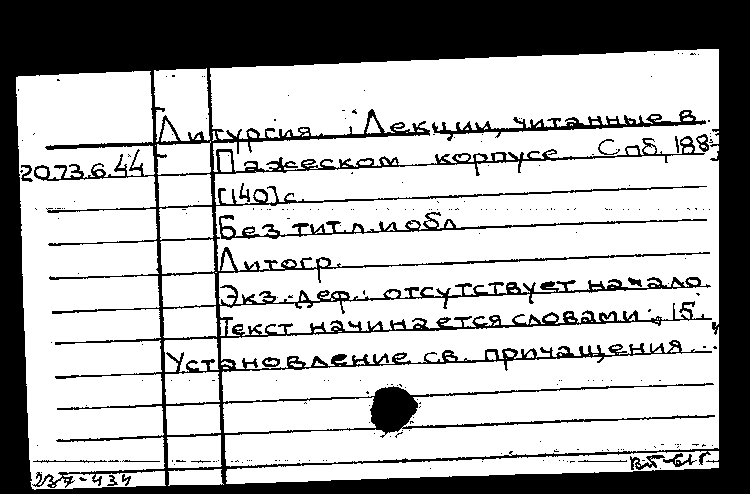 [Литургия. : Лекции, читанные в
20.73.6.44 Пажеском корпусе. Спб, 188-]
[140] с.
Без тит.л. и обл.
Литогр.
Экз. деф.: отсутствует начало.
Текст начинается словами: „15.
Установление св. причащения..."
237-434